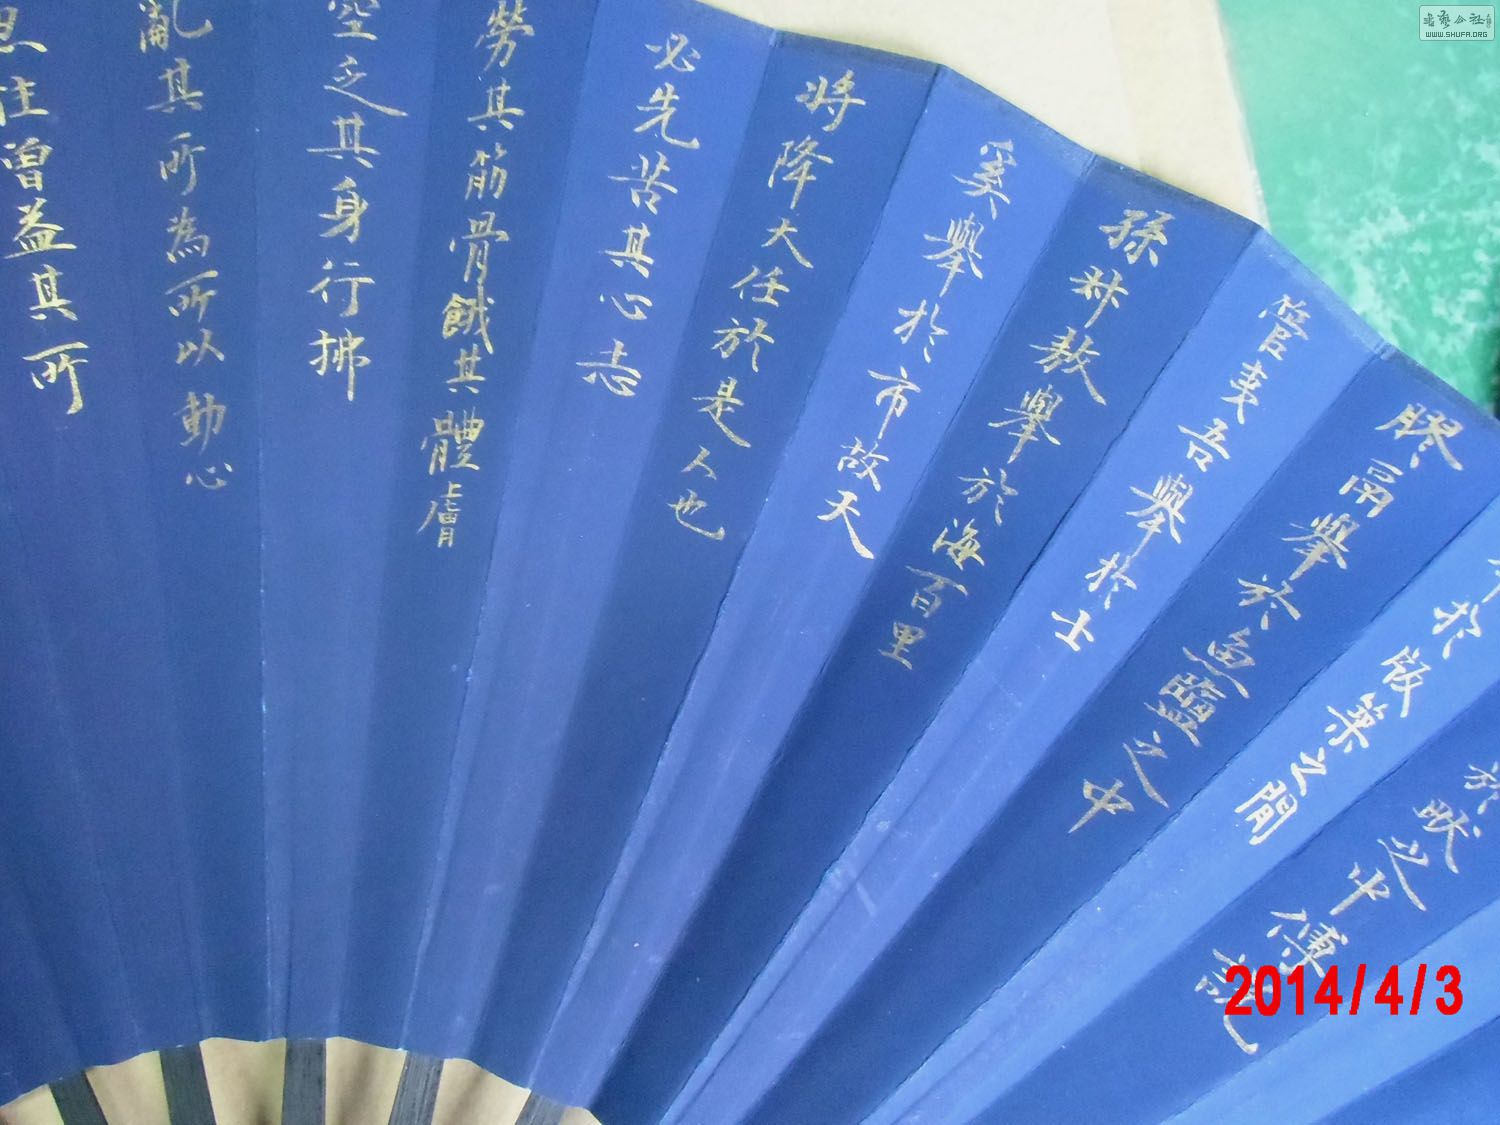 於畎之中傅說
於版築之閒
膠鬲舉於魚鹽之中
管夷吾舉於士
孫叔敖舉於海百里
奚舉於市故天
將降大任於是人也
必先苦其心志
勞其筋骨餓其體膚
空乏其身行拂
亂其所為所以動心
忍性曾益其所
2014/4/3
WWW.SHUFA.ORG